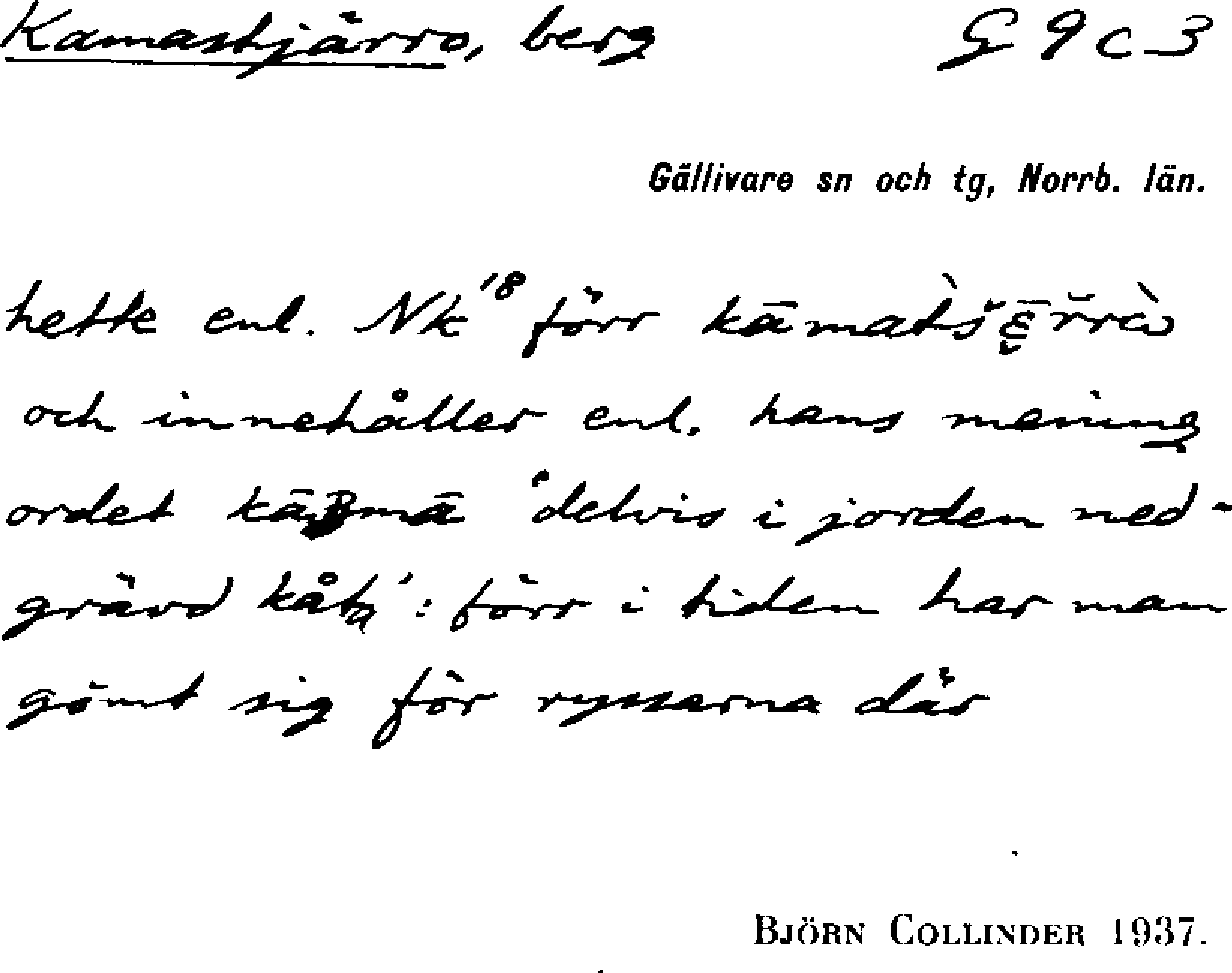 Kamastjärro, berg G 9 c 3
Gällivare sn och tg, Norrb. län.
hette enl. Nk'8 förr
och innehåller enl. hans mening
ordet "delvis i jorden ned-
grävd kåta': förr i tiden har man
gömt sig för ryssarna där
BJÖRN COLLINDER 1937.